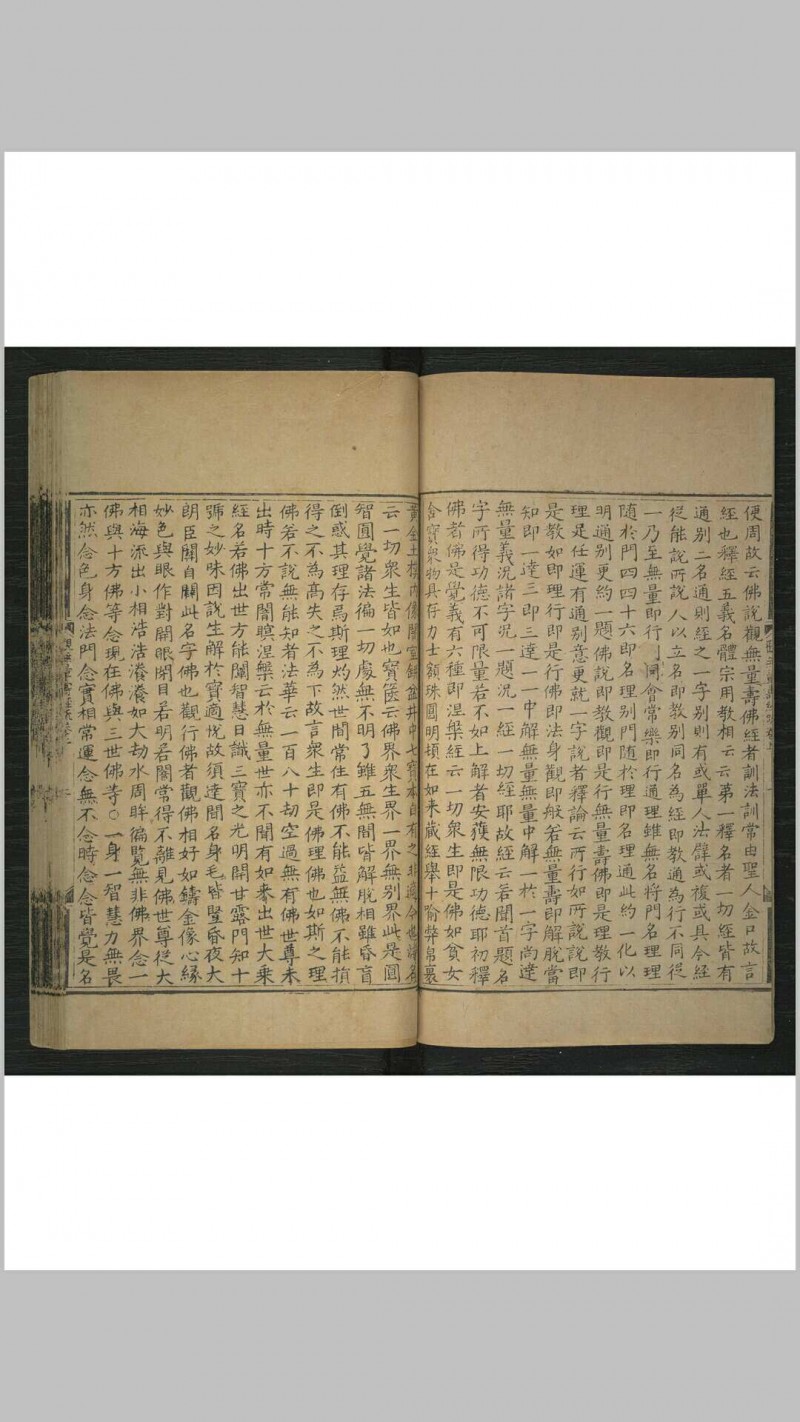 便周故云佛說觀無量壽佛經者訓法訓常由聖人金口故言
經也釋經五義名體宗用教相云云第一釋名者一切經皆有
通別二名通則經之一字別則有或單人法譬或複或具今經
從能說所說人以立名即教別同名為經即教通為行不同從
一乃至無量即行別會常樂即行通理雖無名將門名理理
隨於門四四十六即名理別門隨於理即名理通此約一化以
明通別更約一題佛說即教觀即是行無量壽佛即是理教行
理足任運有通別意更就一字說者釋論云所行如所說說即
是教如即理行即是行佛即法身觀即般若無量壽即解脫當
知即一達三即三達一一中解無量無量中解一於一字尚達
無量義況諸字況一題況一經一切經耶故經云若聞首題名
字所得功德不可限量若不如上解者安獲無限功德耶初釋
佛者佛是覺義有六種即涅槃經云一切眾生即是佛如貧女
舍寶眾物具存力士額珠圓明頓在如來藏經舉十喻弊帛裹
黃金土模內像闇室瓶盆井中七寶本自有之非適今也淨名
云一切眾生皆如也寶篋云佛界眾生界一界無別界此是圓
智圓覺諸法徧一切處無不明了雖五無間皆解脫相雖昏盲
倒惑其理存焉斯理灼然世間常住有佛不能益無佛不能損
得之不為高失之不為下故言眾生即是佛理佛也如斯之理
佛若不說無能知者法華云一百八十劫空過無有佛世尊未
出時十方常闇暝涅槃云於無量世亦不聞有如來出世大乘
經名若佛出世方能闡智慧日識三寶之光明開甘露門知十
號之妙味因說生解於寶適悅故須達聞名身毛皆豎昏夜大
朗臣闇自闢此名字佛也觀行佛者觀佛相好如鑄金像心緣
妙色與眼作對開眼閉目若明若闇常得不離見佛世尊從大
相海派出小相浩浩瀁瀁如大劫水周眸徧覽無非佛界念一
佛與十方佛等念現在佛與三世佛等○一身一智慧力無畏
亦然念色身念法門念實相常運念無不念時念念皆覺是名